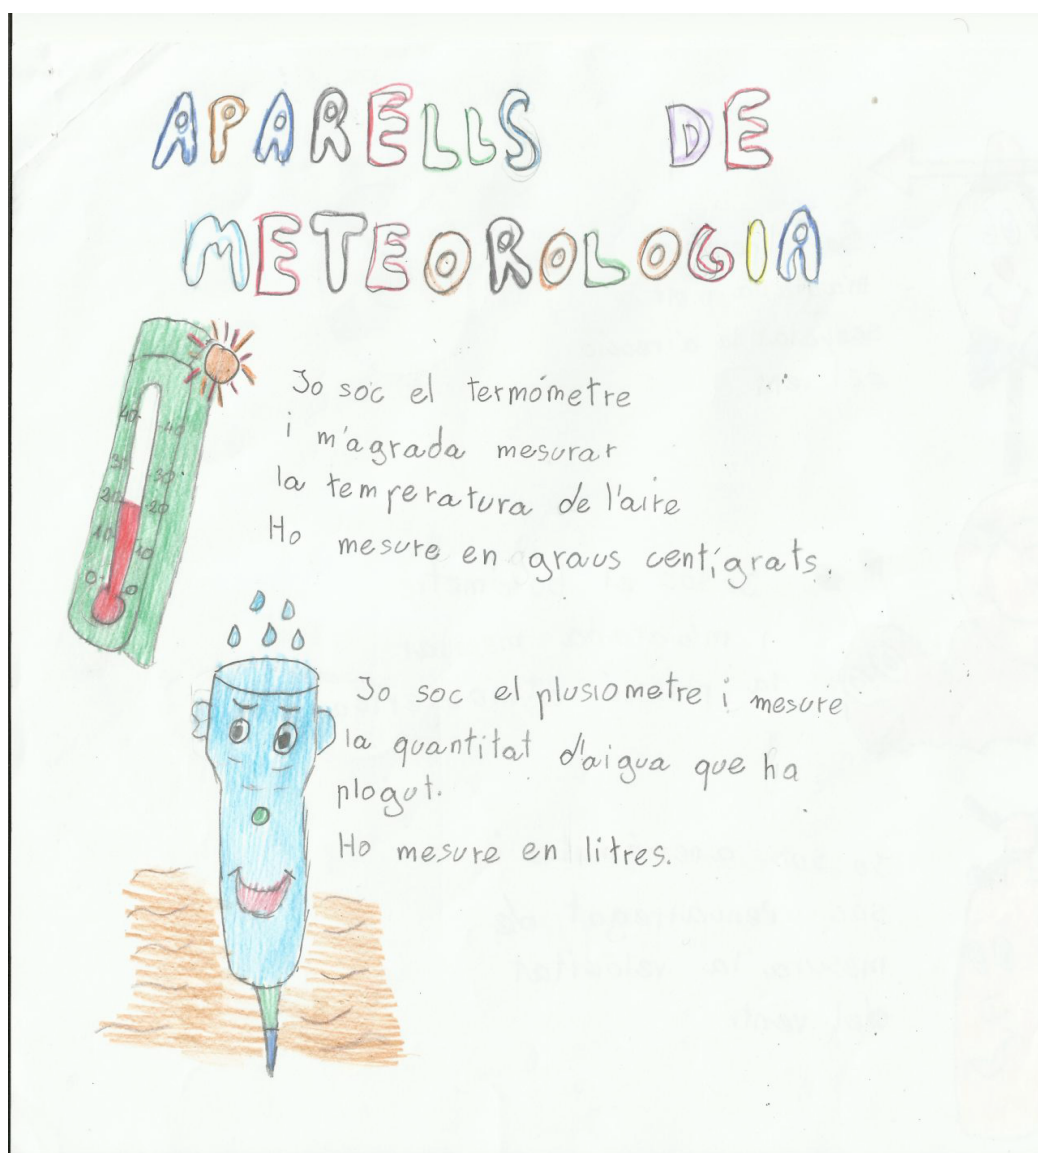 APARELLS DE
METEOROLOGIA
Jo soc el termómetre
i m'agrada mesurar
la temperatura de l'aire
Ho mesure en graus centígrats.
40 40
30 30
20 20
10 10
0 0
Jo soc el plusiometre i mesure
la quantitat d'aigua que ha
plogut.
Ho mesure en litres.